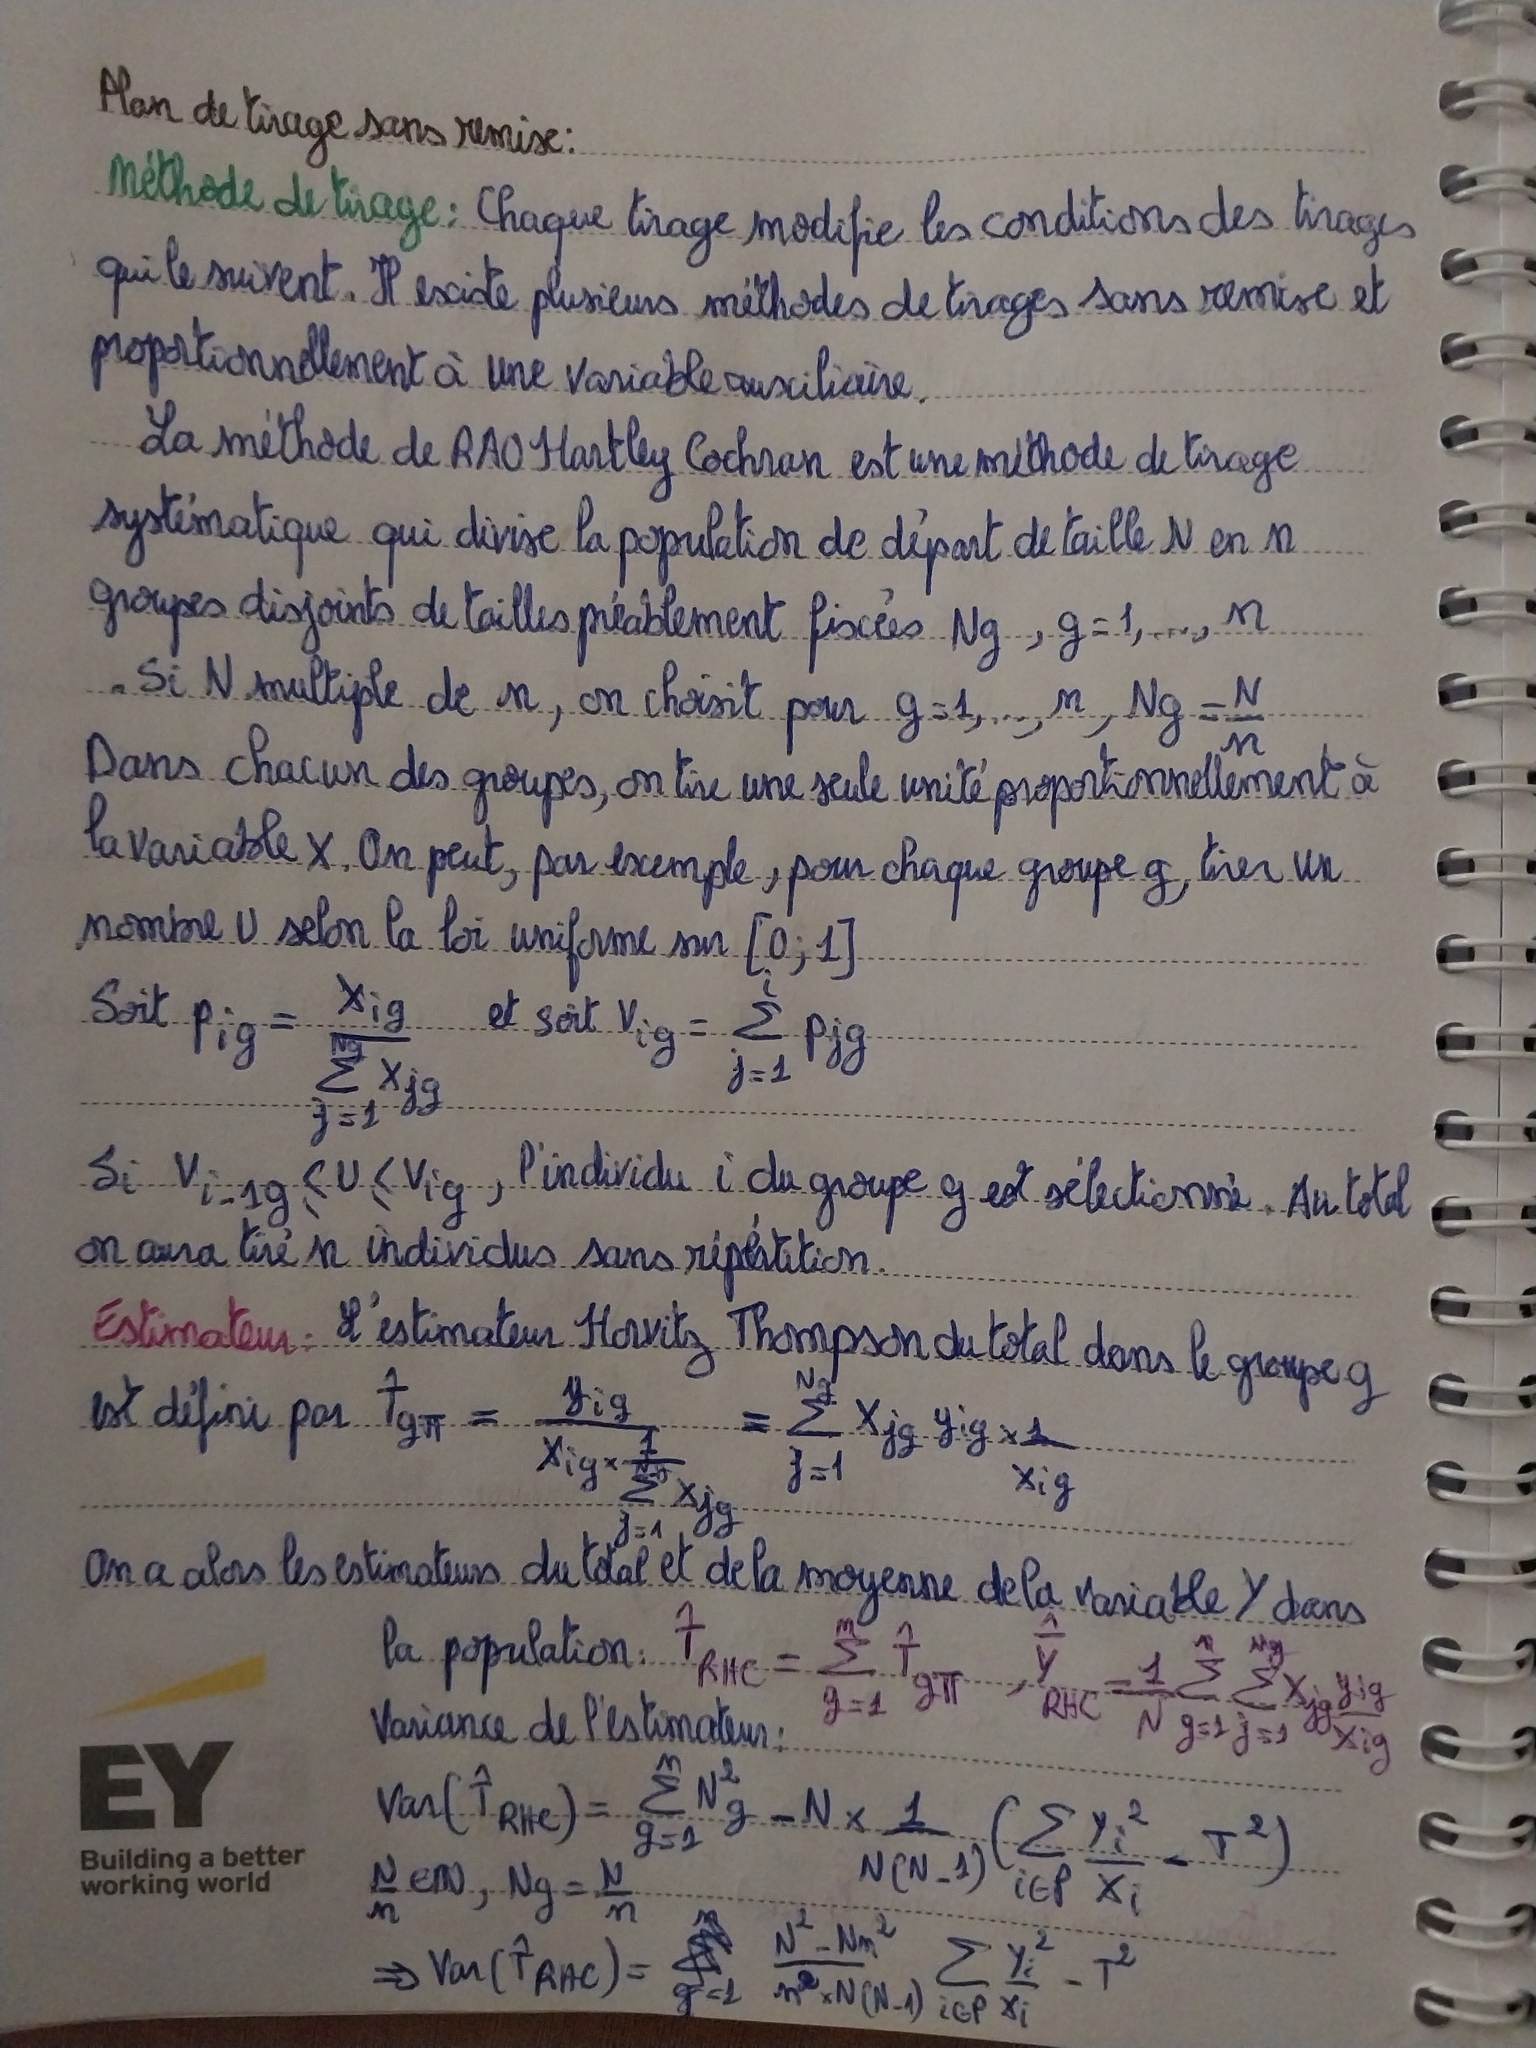 Plan de tirage sans remise:
Méthode de tirage: Chaque tirage modifie les conditions des tirages
qui le suivent. Il existe plusieurs méthodes de tirages sans remise et
proportionnellement à une variable auxiliaire.
La méthode de RAO Hartley Cochran est une méthode de tirage
systématique qui divise la population de départ de taille N en n
groupes disjoints de tailles préablement fixées Ng, g=1,...,n
. Si N multiple de n, on choisit pour g=1,...,n, Ng = N/n
Dans chacun des groupes, on tire une seule unité proportionnellement à
la variable X. On peut, par exemple, pour chaque groupe g, tirer un
nombre U selon la loi uniforme sur [0;1]
Soit p_ig = X_ig / ∑_{j=1}^{Ng} X_jg et soit V_ig = ∑_{j=1}^{i} p_jg
Si V_i-1g ≤ U ≤ V_ig, l'individu i du groupe g est sélectionné. Au total
on aura tiré n individus sans répétition.
Estimateur: L'estimateur Horvitz Thompson du total dans le groupe g
est défini par T̂_gπ = y_ig / (X_ig × 1/∑_{j=1}^{Ng} X_jg) = ∑_{j=1}^{Ng} X_jg y_ig × 1/X_ig
On a alors les estimateurs du total et de la moyenne de la variable Y dans
la population: T̂_RHC = ∑_{g=1}^{n} T̂_gπ, Ȳ̂_RHC = 1/N ∑_{g=1}^{n} ∑_{j=1}^{Ng} X_jg y_ig/X_ig
Variance de l'estimateur:
Var(T̂_RHC) = ∑_{g=1}^{n} N²_g - N × 1/N(N-1) (∑_{i∈P} Y_i²/X_i - T²)
N/n ∈ ℕ, Ng = N/n
⇒ Var(T̂_RHC) = (N² - Nn²)/(n² × N(N-1)) ∑_{i∈P} Y_i²/X_i - T²
EY
Building a better
working world